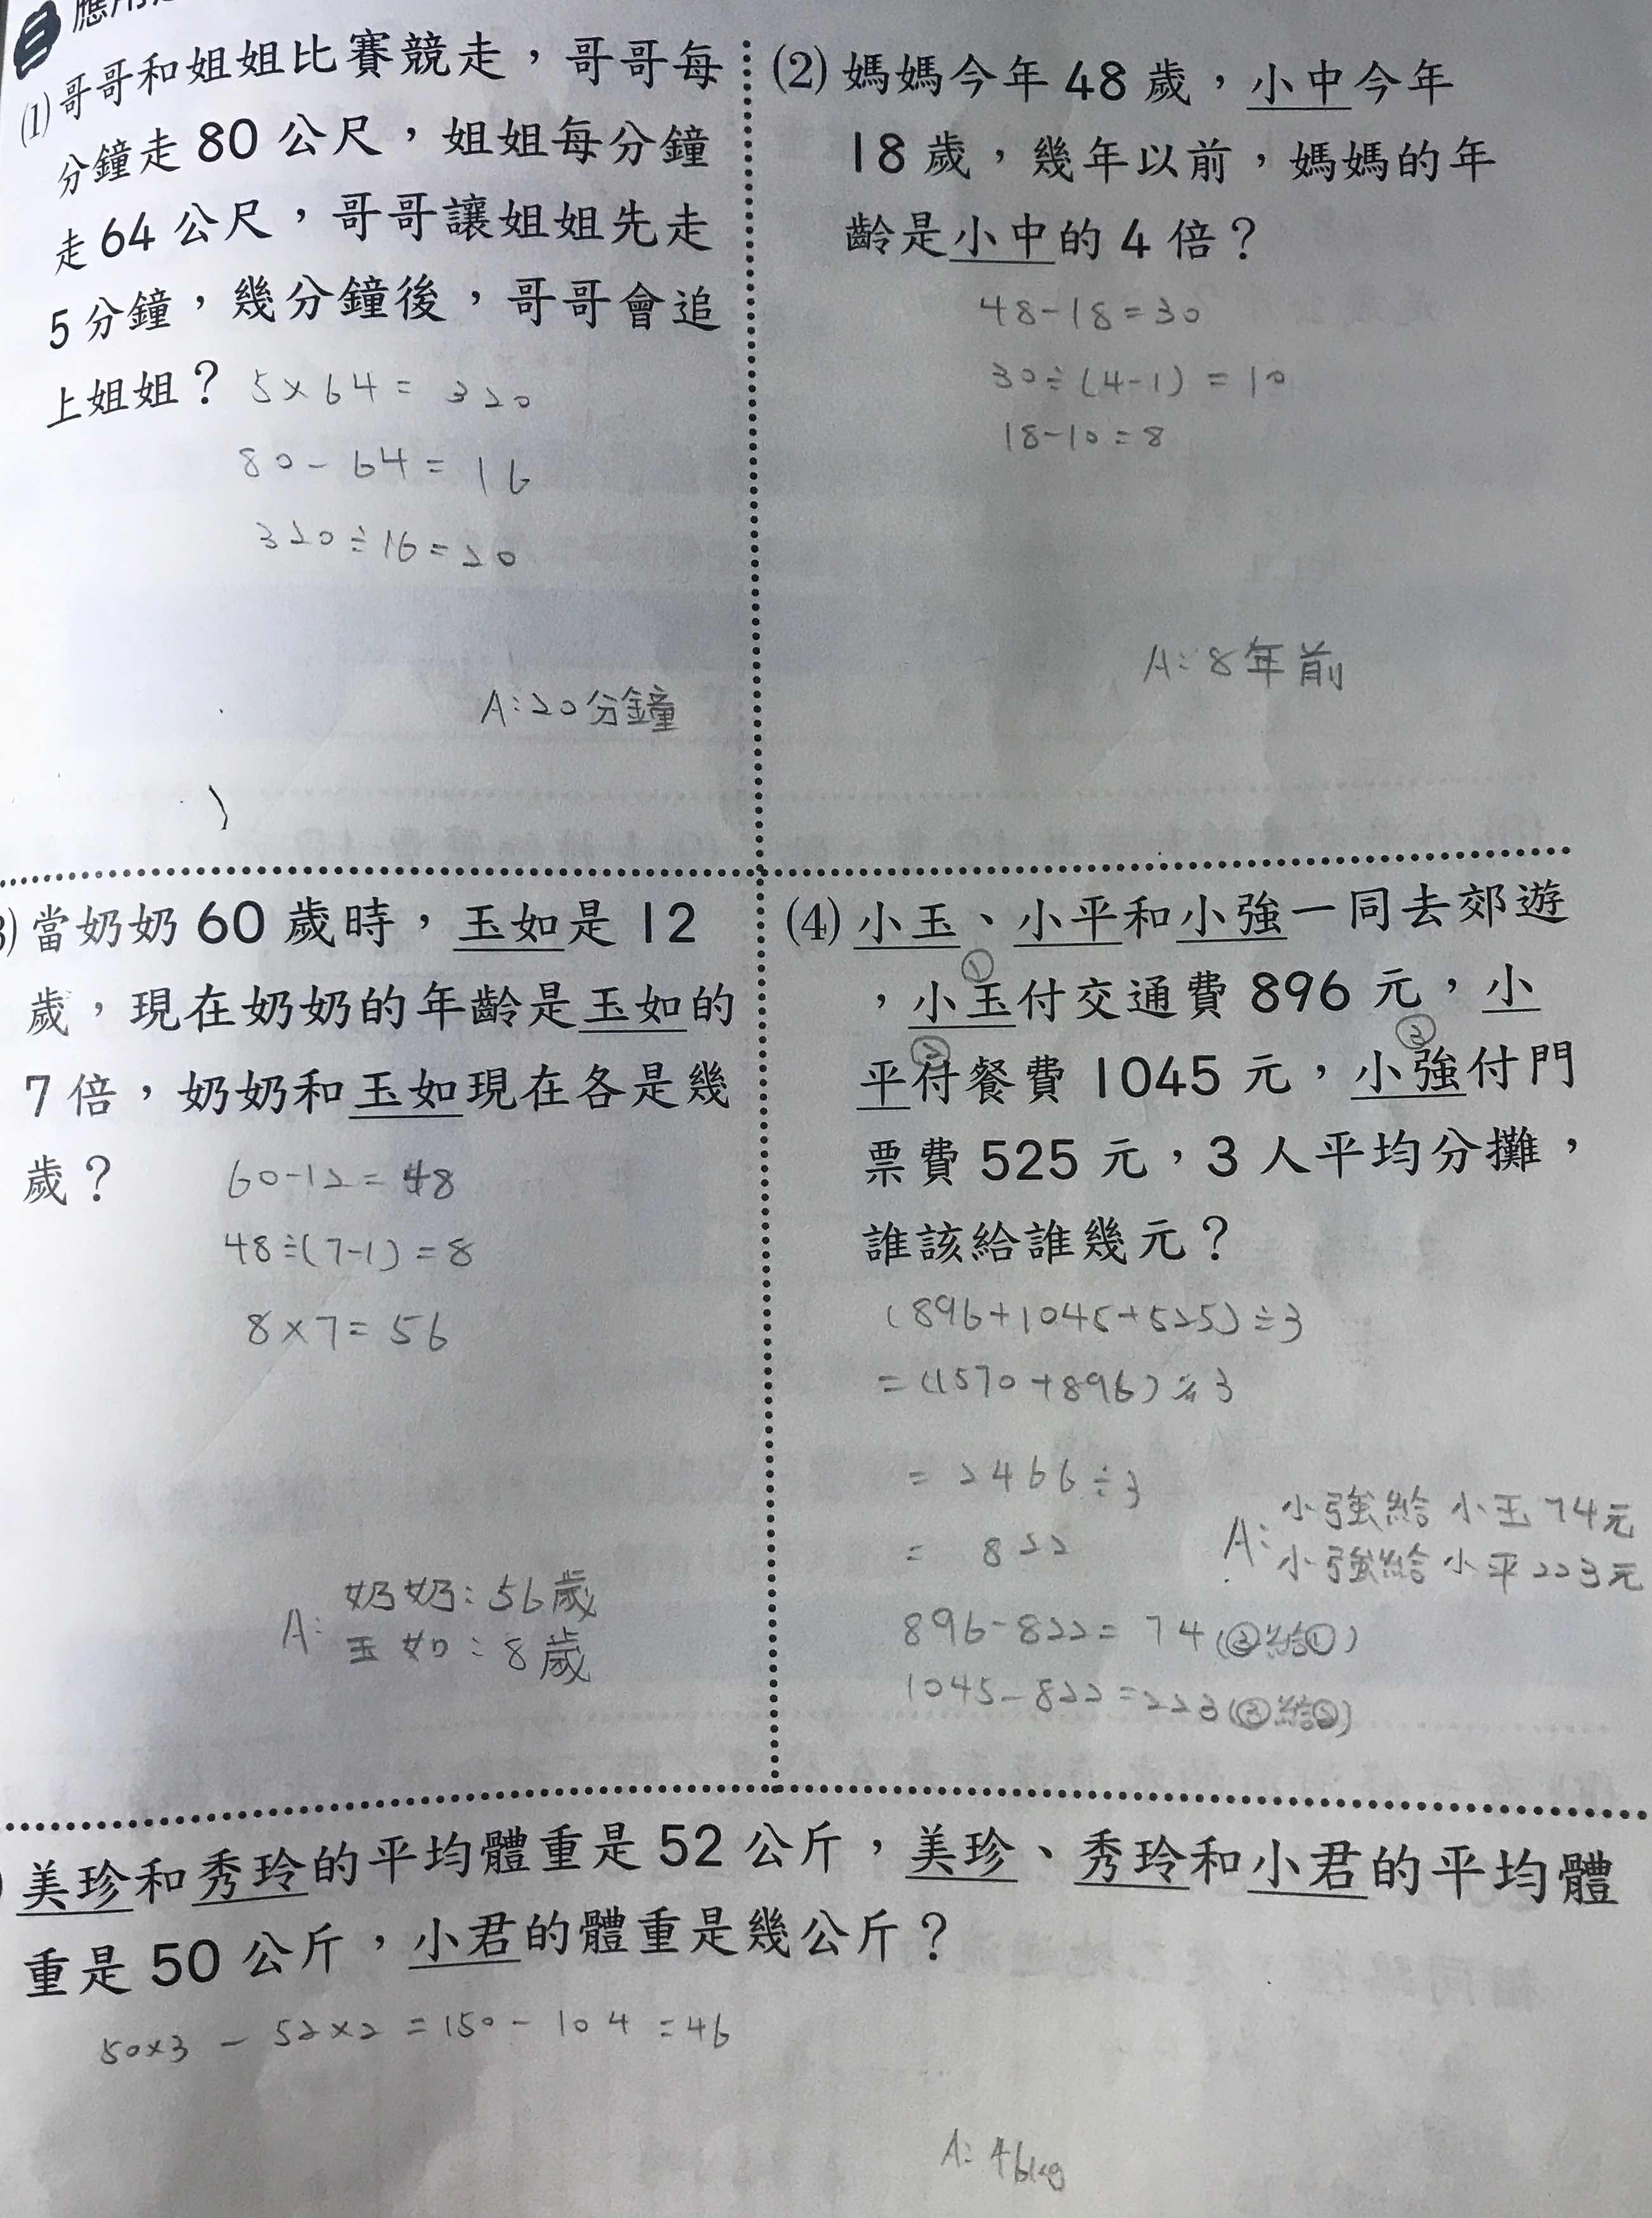 三 應用
(1) 哥哥和姐姐比賽競走，哥哥每
分鐘走 80 公尺，姐姐每分鐘
走 64 公尺，哥哥讓姐姐先走
5 分鐘，幾分鐘後，哥哥會追
上姐姐？ 5×64= 320
80-64=16
320÷16=20
A:20分鐘
(2) 媽媽今年 48 歲，小中今年
18 歲，幾年以前，媽媽的年
齡是小中的 4 倍？
48-18=30
30÷(4-1)=10
18-10=8
A:8年前
3) 當奶奶 60 歲時，玉如是 12
歲，現在奶奶的年齡是玉如的
7 倍，奶奶和玉如現在各是幾
歲？ 60-12=48
48÷(7-1)=8
8×7=56
A: 奶奶:56歲
玉如:8歲
(4) 小玉、小平和小強一同去郊遊
①
，小玉付交通費 896 元，小
② ③
平付餐費 1045 元，小強付門
票費 525 元，3 人平均分攤，
誰該給誰幾元？
(896+1045+525)÷3
=(1570+896)÷3
=2466÷3
= 822
A: 小強給小玉74元
小強給小平223元
896-822=74(③給①)
1045-822=223(③給②)
) 美珍和秀玲的平均體重是 52 公斤，美珍、秀玲和小君的平均體
重是 50 公斤，小君的體重是幾公斤？
50×3-52×2=150-104=46
A:46kg